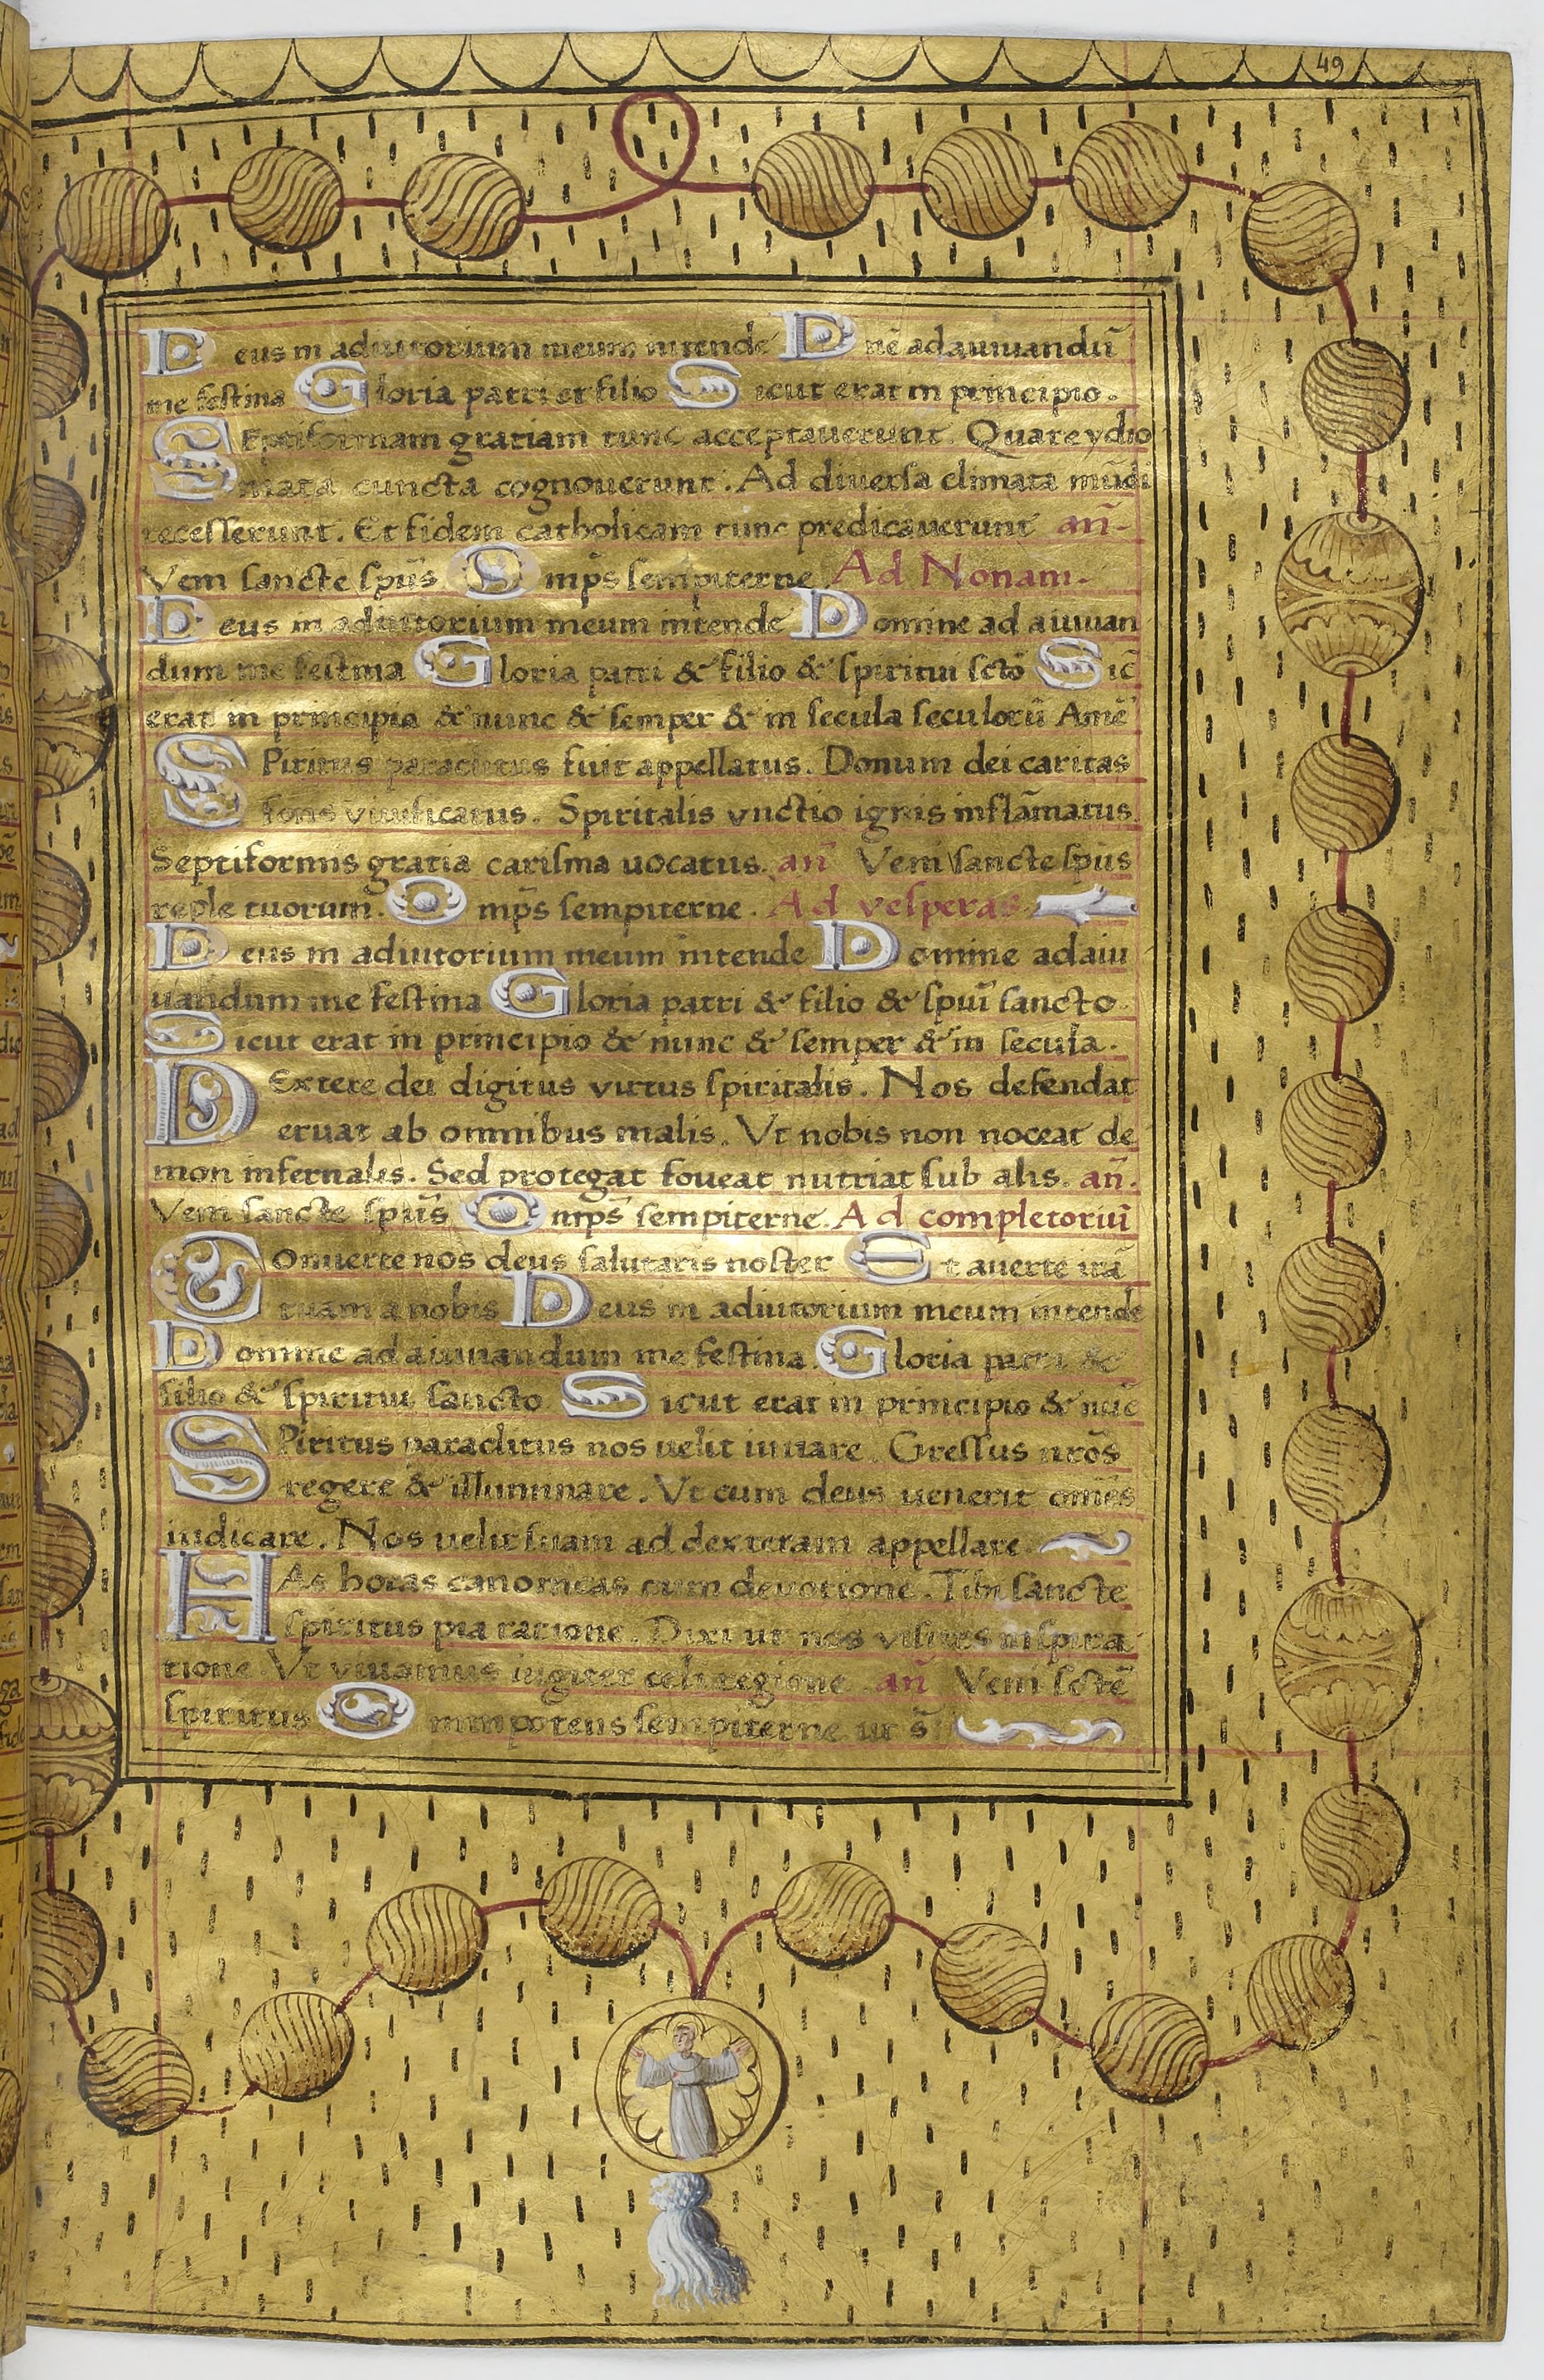 49
Deus in adiutorium meum intende Dnē ad adiuuandū
me festina Gloria patri et filio Sicut erat in principio.
SEptiformam gratiam tunc acceptauerunt. Quare ydio
mata cuncta cognouerunt. Ad diuersa climata mūdi
recesserunt. Et fidem catholicam tunc predicauerunt an̄-
Veni sancte sp̄us Omp̄s sempiterne. Ad Nonam.
Deus in adiutorium meum intende Domine ad aiuuan
dum me festina Gloria patri & filio & spiritui sctō Sic̄
erat in principio & nunc & semper & in secula seculorū Amē
SPiritus paraclitus fuit appellatus. Donum dei caritas
fons viuificatus. Spiritalis vnctio ignis inflāmatus
Septiformis gratia carisma uocatus. an̄ Veni sancte sp̄us
reple tuorum. Omp̄s sempiterne. Ad vesperas
Deus in adiutorium meum intende Domine ad aiu
uandum me festina Gloria patri & filio & spuī sancto
Sicut erat in principio & nunc & semper & in secula.
DExtere dei digitus virtus spiritalis. Nos defendat
eruat ab omnibus malis. Vt nobis non noceat de
mon infernalis. Sed protegat foueat nutriat sub alis. an̄.
Veni sancte sp̄us Omp̄s sempiterne. Ad completoriū
COnuerte nos deus salutaris noster Et auerte irā
tuam a nobis Deus in adiutorium meum intende
Domine ad aiuuandum me festina. Gloria patri &
filio & spiritui sancto Sicut erat in principio & nūc
SPiritus paraclitus nos uelit iuuare. Gressus nrōs
regere & illuminare. Vt cum deus uenerit omēs
iudicare. Nos uelit suam ad dexteram appellare
HAs horas canonicas cum deuotione. Tibi sancte
spiritus pia ratione. Dixi ut nos visites inspira
tione. Vt viuamus iugiter celi regione. an̄ Veni sctē
spiritus Omnipotens sempiterne ut s̄